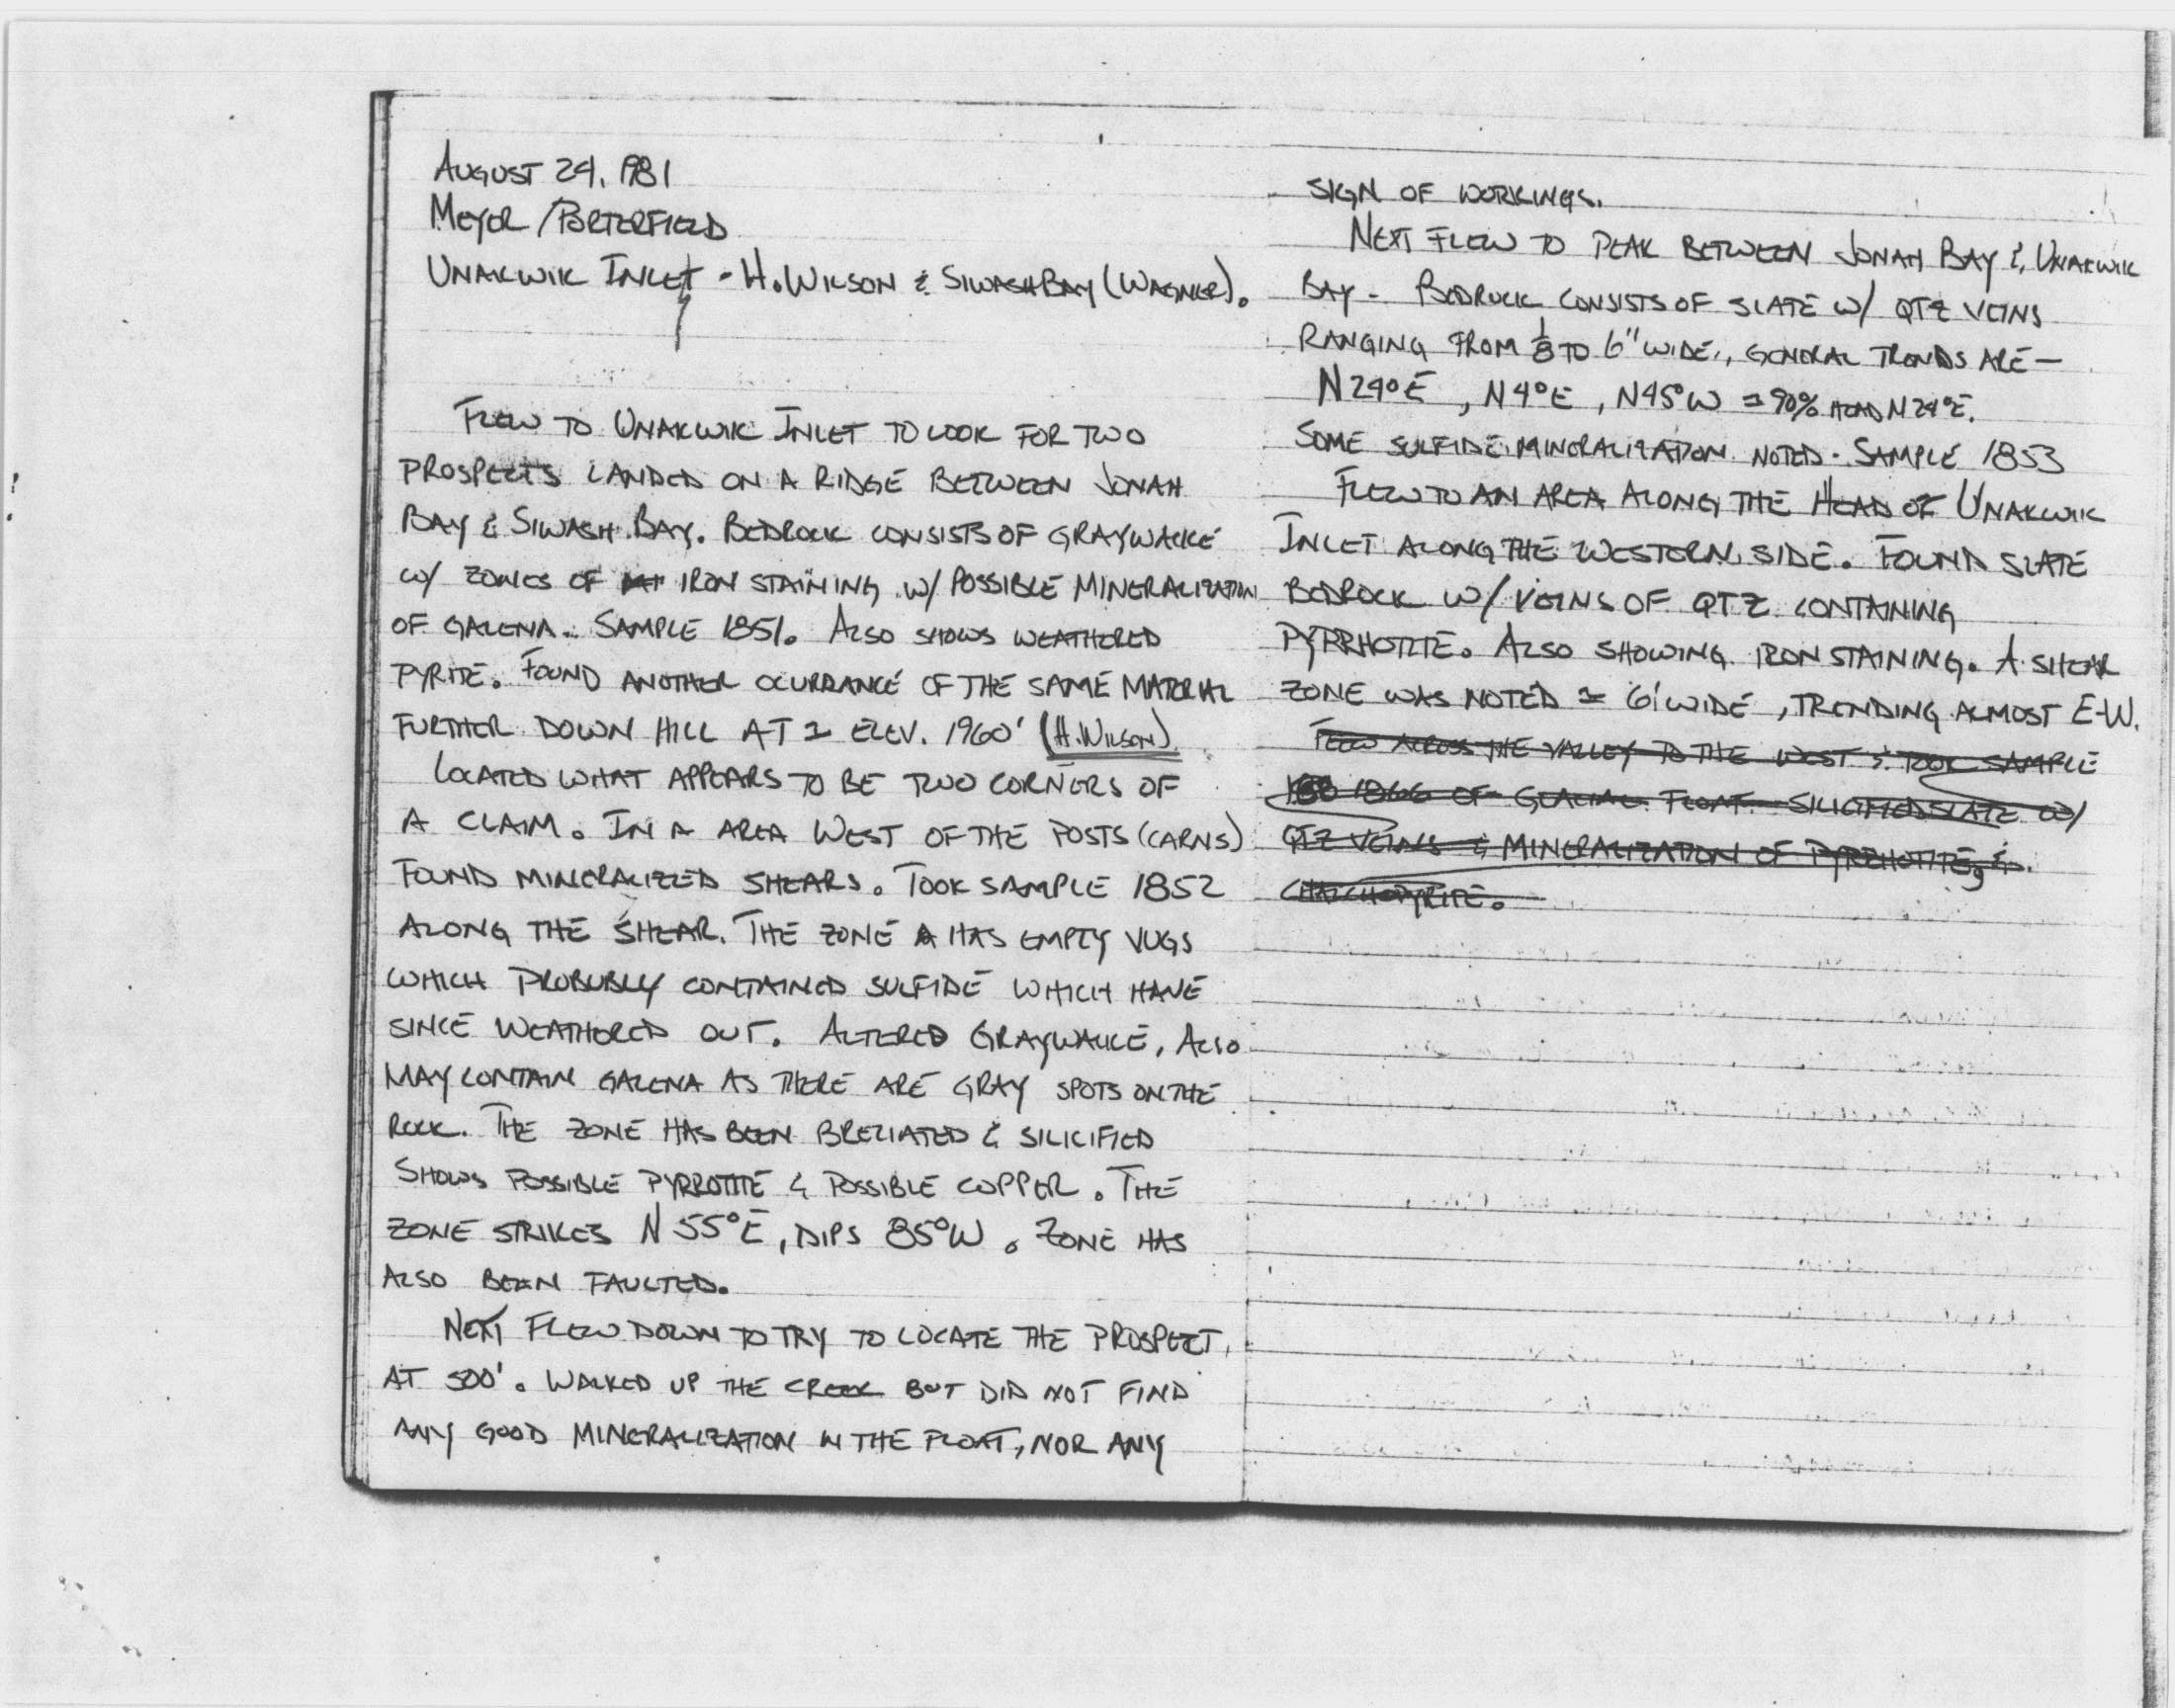 AUGUST 24, 1981
MEYER/PORTERFIELD
UNAKWIK INLET - H. WILSON & SIWASH BAY (WAGNER).
FLEW TO UNAKWIK INLET TO LOOK FOR TWO
PROSPECTS LANDED ON A RIDGE BETWEEN JONAH
BAY & SIWASH BAY. BEDROCK CONSISTS OF GRAYWACKE
W/ ZONES OF IRON STAINING W/ POSSIBLE MINERALIZATION
OF GALENA. SAMPLE 1851. ALSO SHOWS WEATHERED
PYRITE. FOUND ANOTHER OCURRANCE OF THE SAME MATERIAL
FURTHER DOWN HILL AT ≃ ELEV. 1960' (H. WILSON).
LOCATED WHAT APPEARS TO BE TWO CORNERS OF
A CLAIM. IN A AREA WEST OF THE POSTS (CARNS)
FOUND MINERALIZED SHEARS. TOOK SAMPLE 1852
ALONG THE SHEAR. THE ZONE HAS EMPTY VUGS
WHICH PROBUBLY CONTAINED SULFIDE WHICH HAVE
SINCE WEATHERED OUT. ALTERED GRAYWACKE, ALSO
MAY CONTAIN GALENA AS THERE ARE GRAY SPOTS ON THE
ROCK. THE ZONE HAS BEEN BRECIATED & SILICIFIED
SHOWS POSSIBLE PYRROTITE & POSSIBLE COPPER. THE
ZONE STRIKES N 55°E, DIPS 85°W. ZONE HAS
ALSO BEEN FAULTED.
NEXT FLEW DOWN TO TRY TO LOCATE THE PROSPECT,
AT 500'. WALKED UP THE CREEK BUT DID NOT FIND
ANY GOOD MINERALIZATION IN THE FLOAT, NOR ANY
SIGN OF WORKINGS.
NEXT FLEW TO PEAK BETWEEN JONAH BAY & UNAKWIK
BAY - BEDROCK CONSISTS OF SLATE W/ QTZ VEINS
RANGING FROM 1/8 TO 6" WIDE, GENERAL TRENDS ARE —
N24°E, N4°E, N45°W ≃ 90% HEAD N24°E.
SOME SULFIDE MINERALIZATION NOTED - SAMPLE 1853
FLEW TO AN AREA ALONG THE HEAD OF UNAKWIK
INLET ALONG THE WESTERN SIDE. FOUND SLATE
BEDROCK W/ VEINS OF QTZ CONTAINING
PYRRHOTITE. ALSO SHOWING IRON STAINING. A SHEAR
ZONE WAS NOTED ≃ 6' WIDE, TRENDING ALMOST E-W.
FLEW ACROSS THE VALLEY TO THE WEST & TOOK SAMPLE
1866 OF GLACIAL FLOAT - SILICIFIED SLATE W/
QTZ VEINS & MINERALIZATION OF PYRRHOTITE, &
CHALCHOPYRITE.